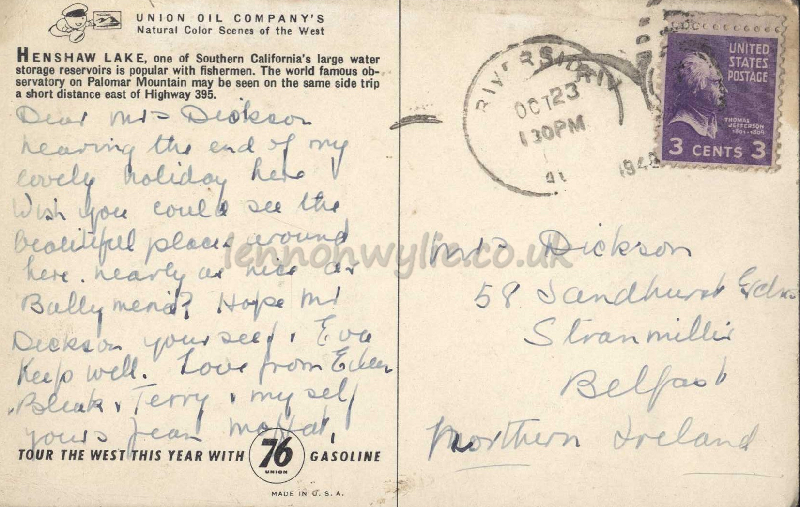 UNION OIL COMPANY'S
Natural Color Scenes of the West
HENSHAW LAKE, one of Southern California's large water
storage reservoirs is popular with fishermen. The world famous ob-
servatory on Palomar Mountain may be seen on the same side trip
a short distance east of Highway 395.
Dear Mrs Dickson
nearing the end of my
lovely holiday here
Wish you could see the
beautiful places around
here. nearly as nice as
Ballymena? Hope Mr
Dickson yourself & Eva
Keep well. Love from Eileen
Terry & my self
yours Jean Moffat
TOUR THE WEST THIS YEAR WITH 76 UNION GASOLINE
MADE IN U. S. A.
RIVERSIDE
OCT 23
130PM
UNITED
STATES
POSTAGE
THOMAS
JEFFERSON
1801-1809
3 CENTS 3
Mrs Dickson
58 Sandhurst Gdns
Stranmillis
Belfast
Northern Ireland
lennonwylie.co.uk